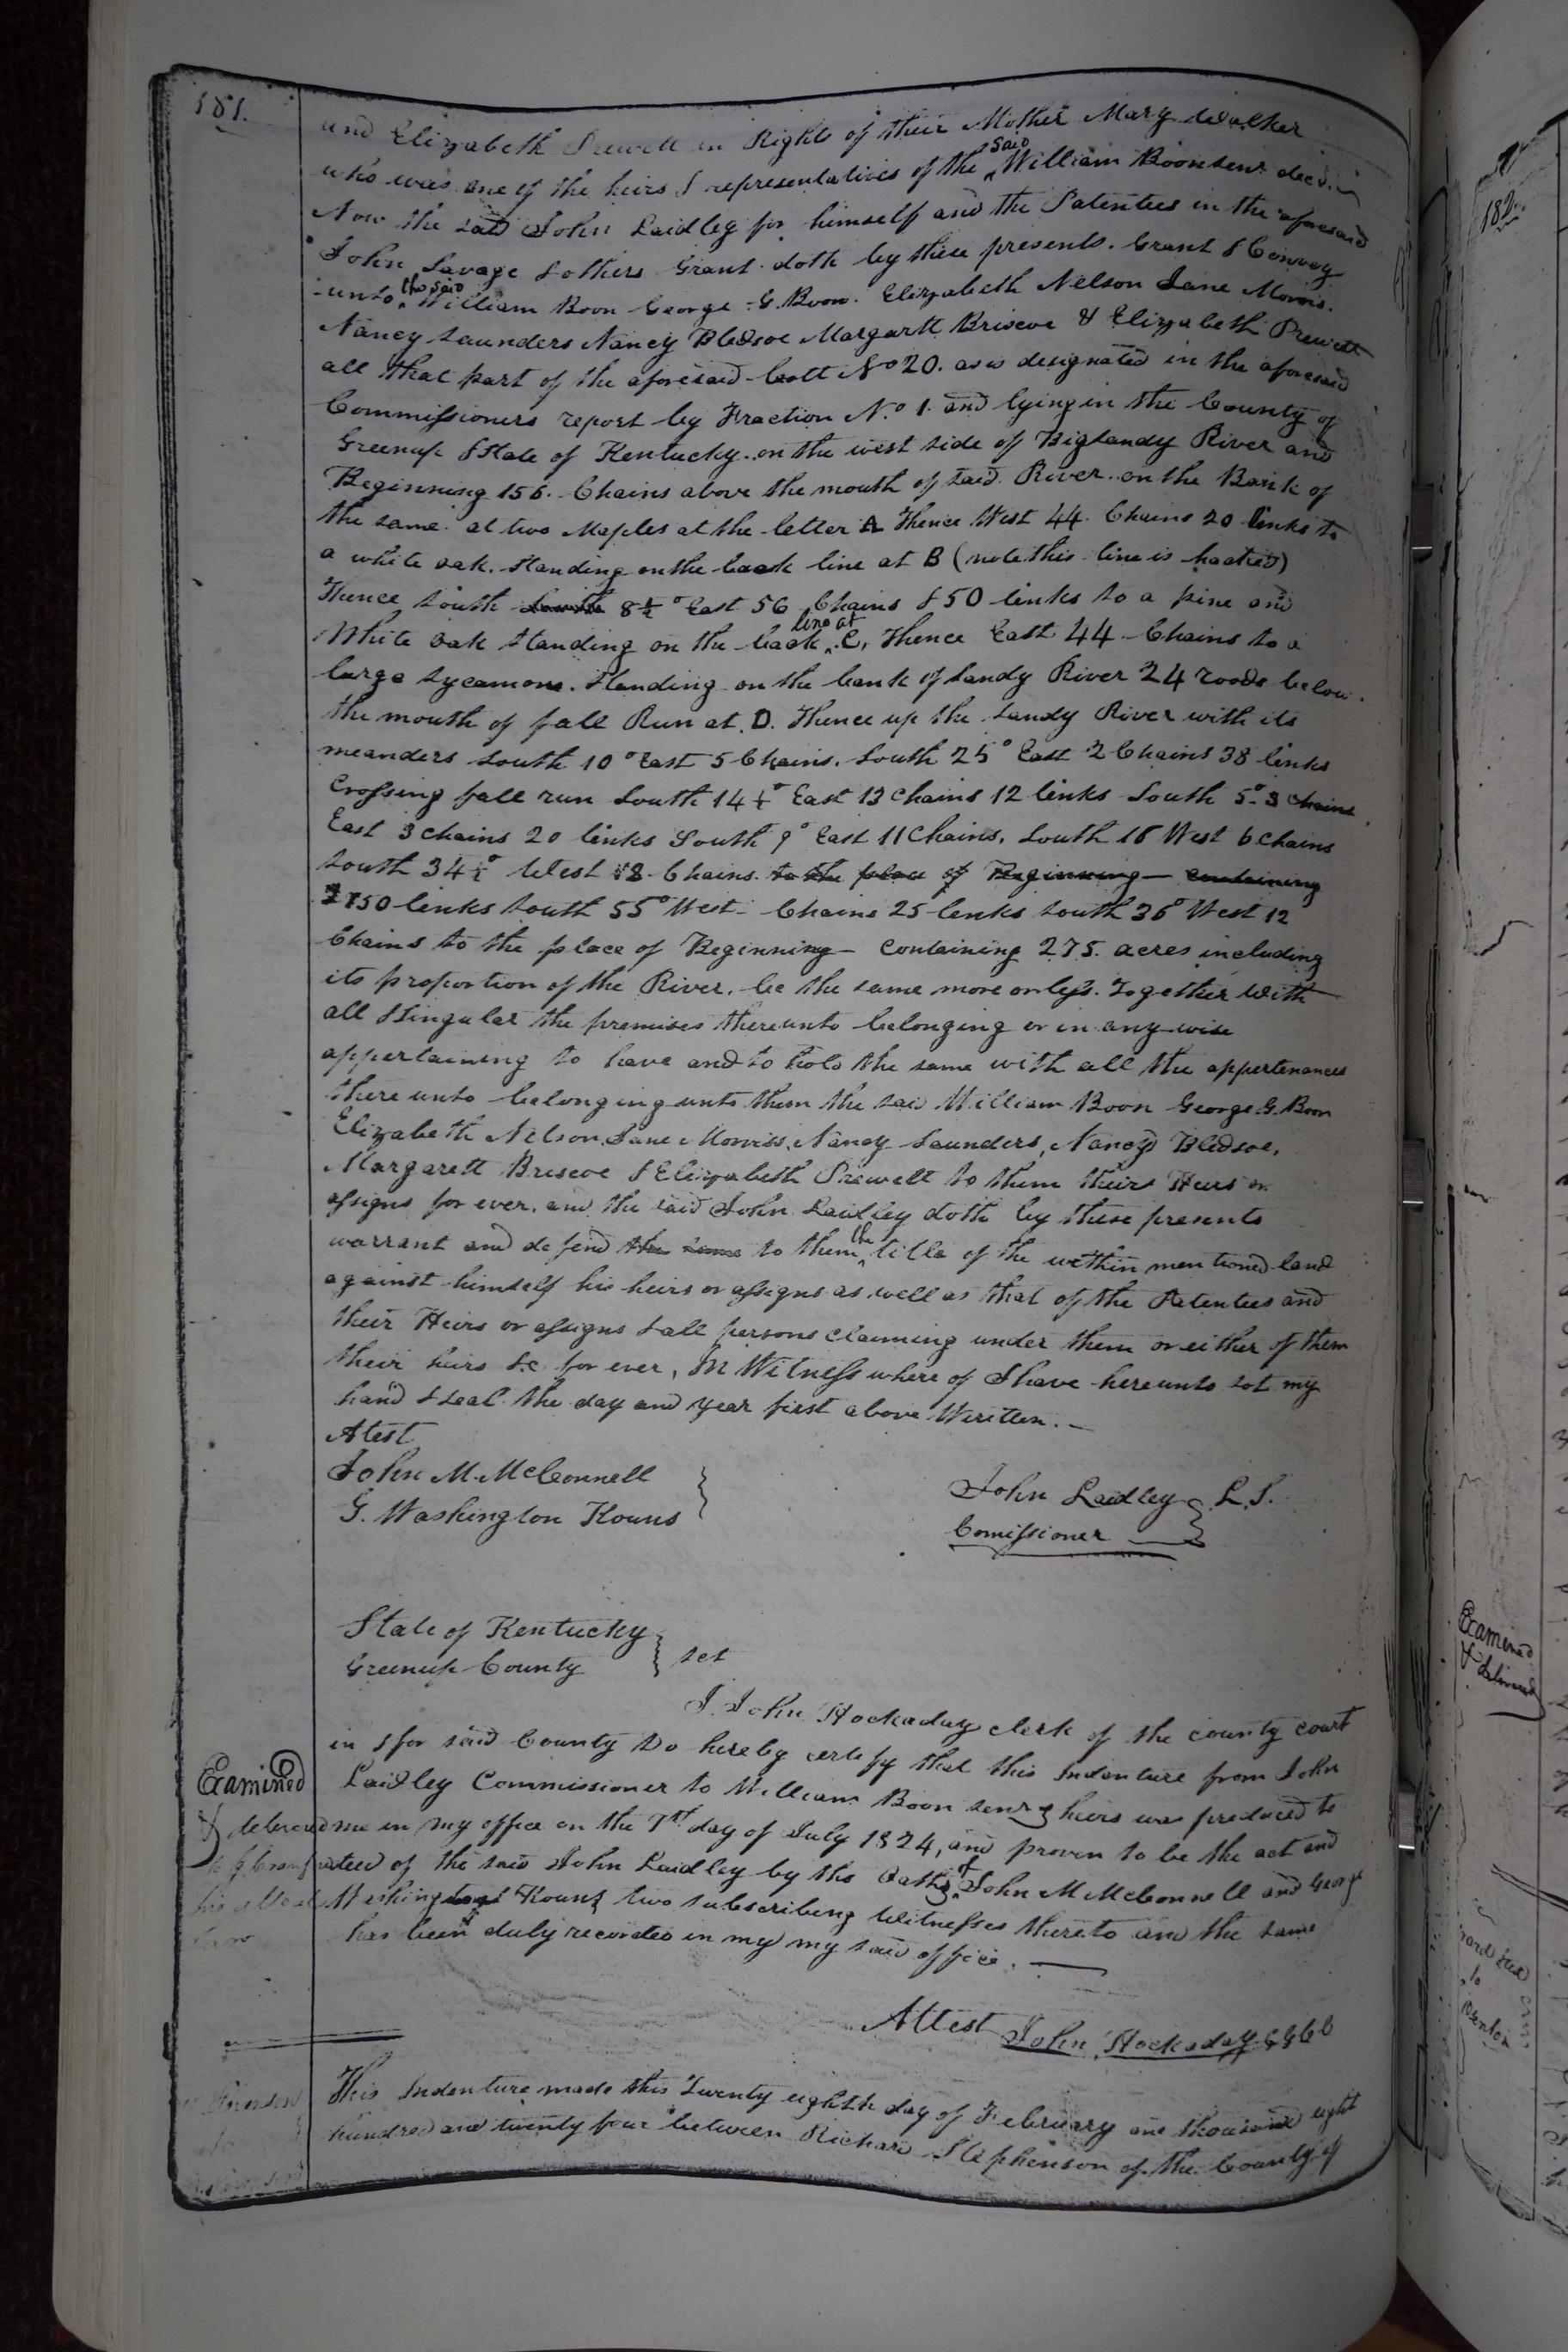 181.
and Elizabeth Prewett in Right of their Mother Mary Walker
who was one of the heirs & representatives of the said William Boon senr decd.
Now the said John Laidley for himself and the Patentees in the aforesaid
John Savage & others Grant doth by these presents. Grant & Convey
unto the said William Boon George G. Boon. Elizabeth Nelson Jane Morris.
Nancy Saunders Nancy Bledsoe Margarett Briscoe & Elizabeth Prewett
all that part of the aforesaid Lott No 20. as is designated in the aforesaid
Commissioners report by Fraction No. 1. and lying in the County of
Greenup & State of Kentucky. on the west side of Bigsandy River and
Beginning 156. Chains above the mouth of said River. on the Bank of
the same. at two Maples at the letter A Thence West 44. Chains 20 links to
a white oak. standing on the back line at B (note this line is hacked)
Thence South South 8½° East 56 Chains & 50 links to a pine and
White oak standing on the back line at C, Thence East 44 Chains to a
large Sycamore. Standing on the bank of Sandy River 24 roods below.
the mouth of fall Run at D. Thence up the Sandy River with its
meanders South 10° East 5 Chains. South 25° East 2 Chains 38 links
Crossing fall run South 14½° East 13 Chains 12 links South 5° 3 chains
East 3 chains 20 links South 9° East 11 Chains. South 16 West 6 Chains
South 34½° West 12 Chains to the place of Beginning — containing
50 links South 55° West - Chains 25 links South 36° West 12
Chains to the place of Beginning — Containing 275. acres including
its proportion of the River. be the same more or less. Together With
all & singular the premises thereunto belonging or in any wise
appertaining to have and to hold the same with all the appertenances
there unto belonging unto them the said William Boon George G. Boon
Elizabeth Nelson, Jane Morriss, Nancy Saunders, Nancy Bledsoe,
Margarett Briscoe & Elizabeth Prewett to them their Heirs or
assigns for ever. and the said John Laidley doth by these presents
warrant and defend the same to them the title of the within mentioned land
against himself his heirs or assigns as well as that of the Patentees and
their Heirs or assigns & all persons claiming under them or either of them
their heirs &c for ever, In Witness where of I have hereunto set my
hand & seal the day and year first above Written. —
Atest
John M. McConnell
G. Washington Kouns
John Laidley L.S.
Comissioner
State of Kentucky
Greenup County
sct
I John Hockaday clerk of the county court
in & for said County Do hereby certify that this Indenture from John
Laidley Commissioner to William Boon senr heirs was produced to
me in my office on the 7th day of July 1824, and proven to be the act and
deed of the said John Laidley by the Oaths of John M McConnell and George
Washington Kouns two subscribing Witnesses thereto and the same
has been duly recorded in my my said office. —
Examined
& delivered
Attest John Hockaday
This Indenture made this Twenty eighth day of February one thousand eight
hundred and twenty four between Richard Stephenson of the County of
182.
Examined
& delivered